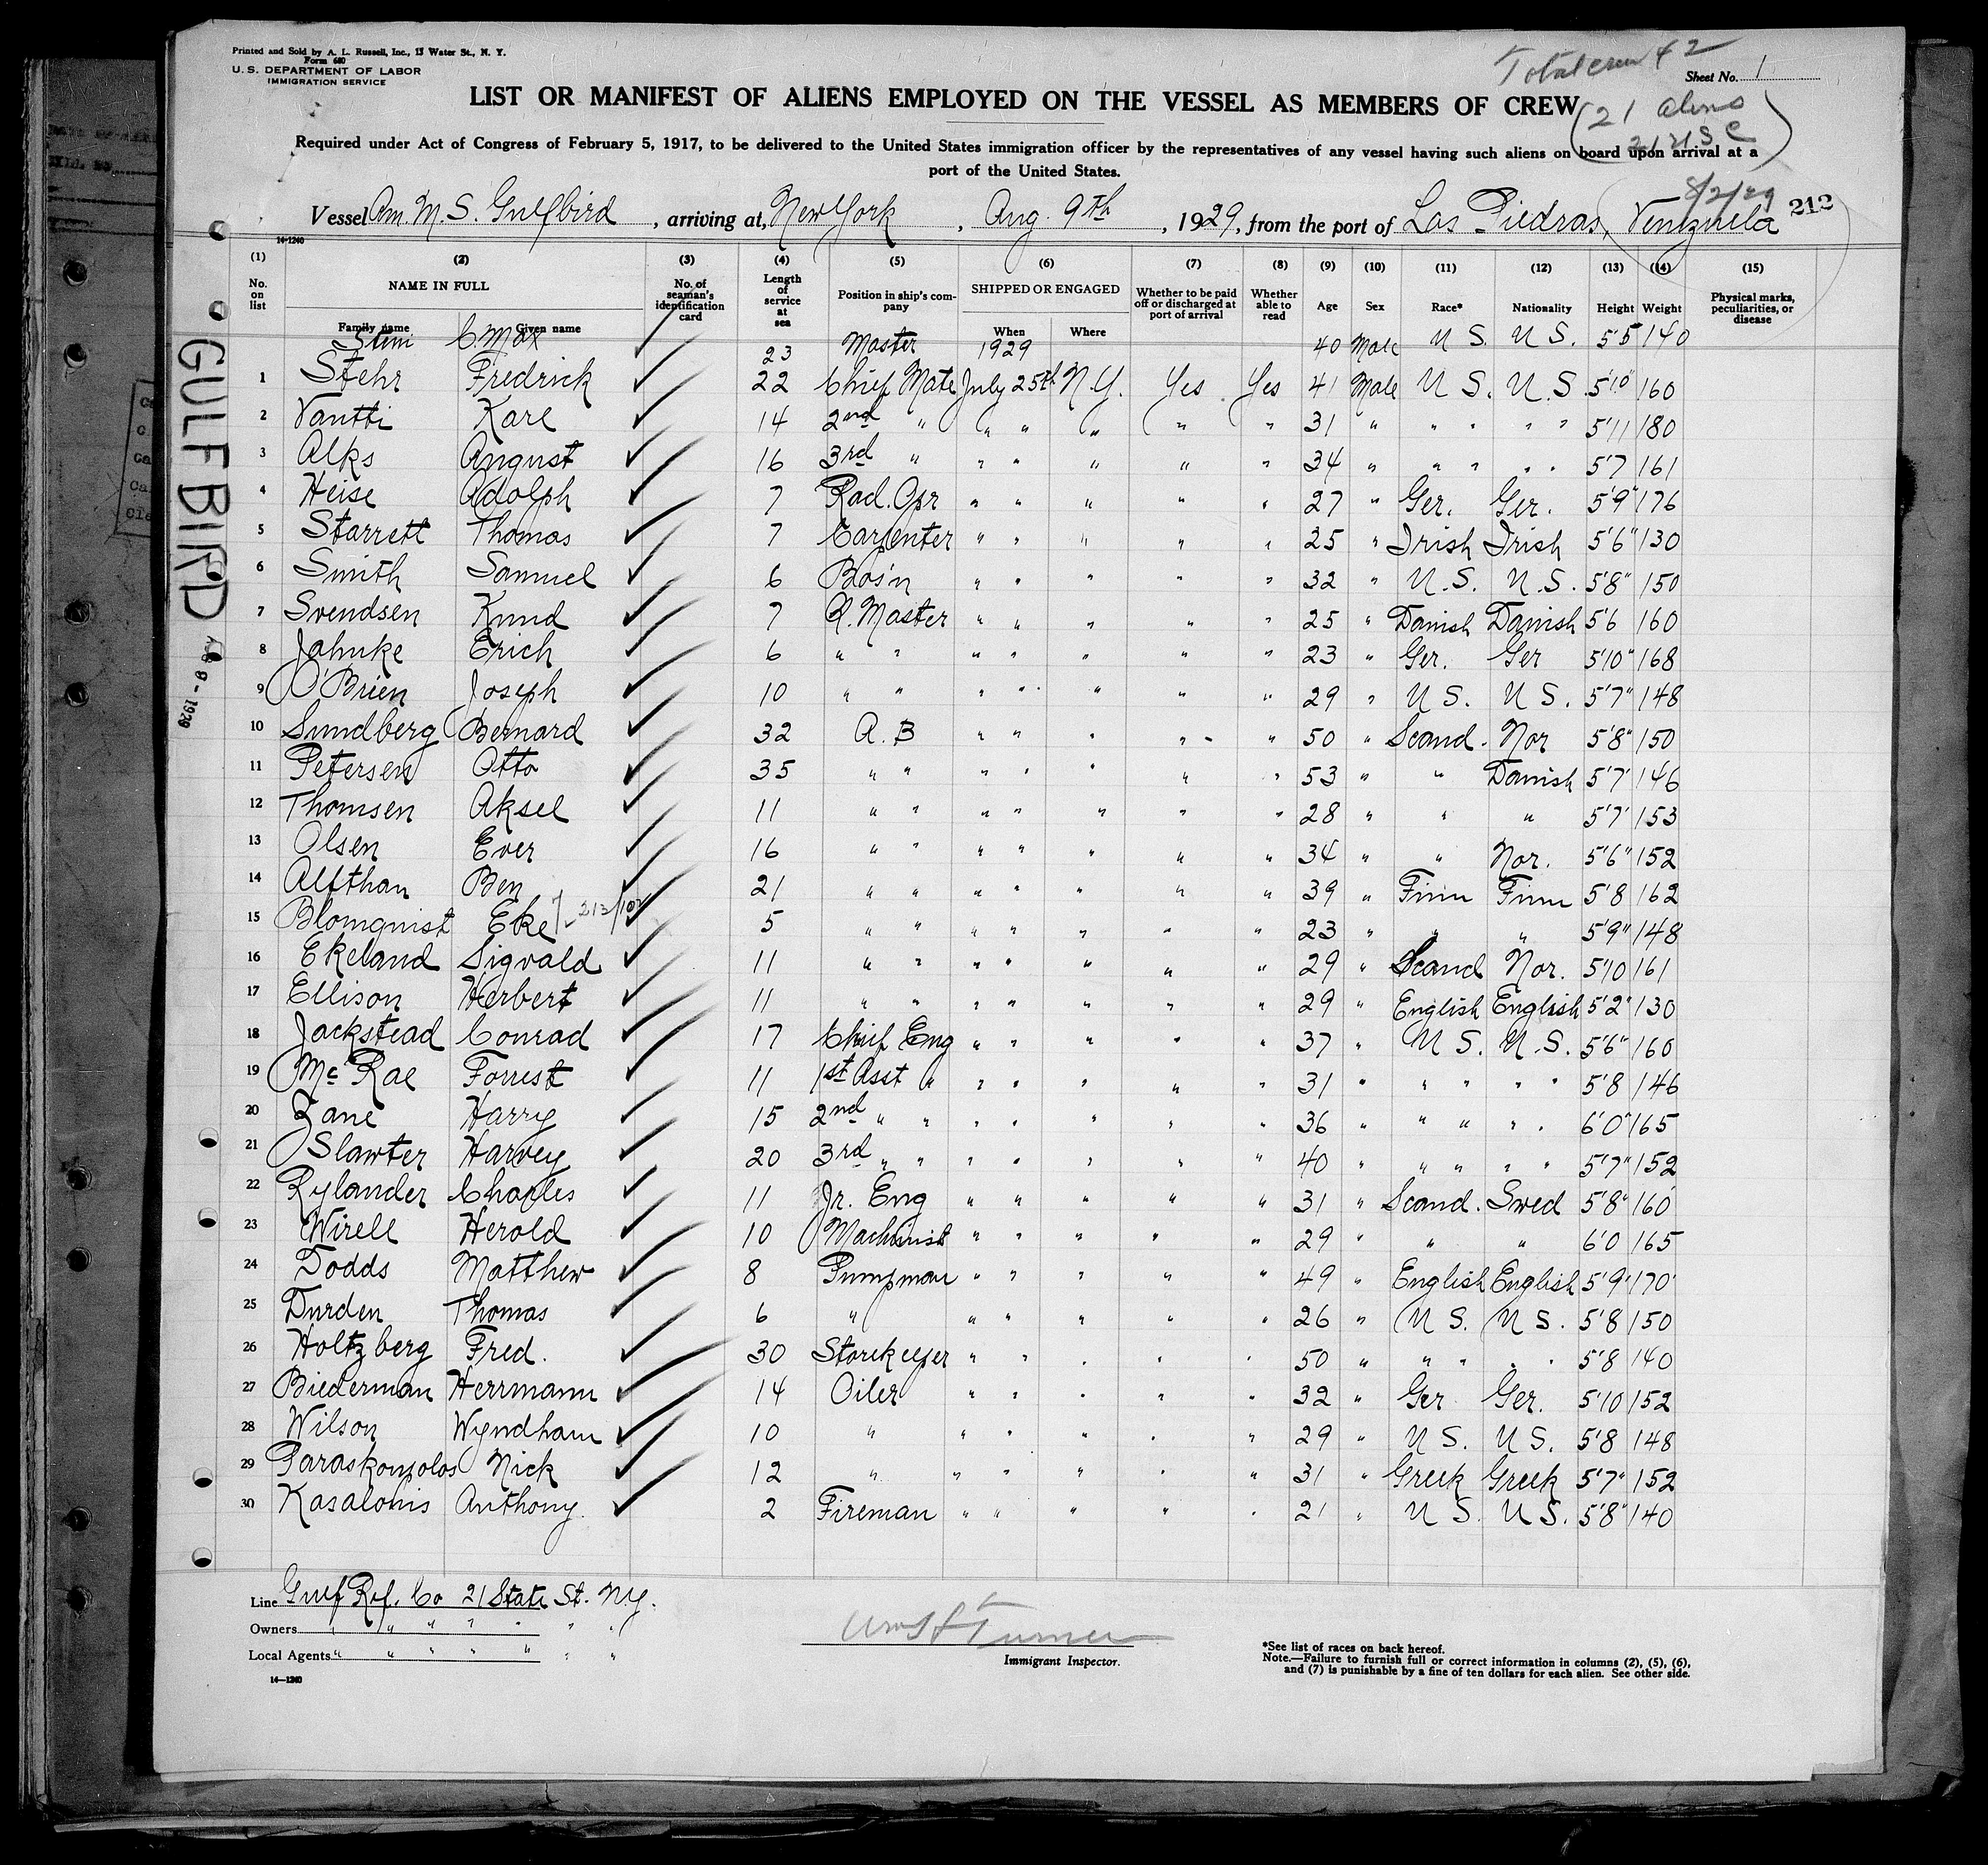 Printed and Sold by A. L. Russell, Inc., 13 Water St., N. Y.
Form 680
U. S. DEPARTMENT OF LABOR
IMMIGRATION SERVICE
Total crew 42
Sheet No. 1
LIST OR MANIFEST OF ALIENS EMPLOYED ON THE VESSEL AS MEMBERS OF CREW
(21 aliens
21 USC)
Required under Act of Congress of February 5, 1917, to be delivered to the United States immigration officer by the representatives of any vessel having such aliens on board upon arrival at a
port of the United States.
8/2/29 212
Vessel Am. M. S. Gulfbird, arriving at, New York, Aug. 9th, 1929, from the port of Las Piedras, Venzuela
14-1240
(1) (2) (3) (4) (5) (6) (7) (8) (9) (10) (11) (12) (13) (14) (15)
No. on list NAME IN FULL Family name Given name No. of seaman's identification card Length of service at sea Position in ship's company SHIPPED OR ENGAGED When Where Whether to be paid off or discharged at port of arrival Whether able to read Age Sex Race* Nationality Height Weight Physical marks, peculiarities, or disease
C. Max 23 Master 1929 40 Male U S. U S. 5'5 140
1 Stehr Fredrick 22 Chief Mate July 25th N.Y. Yes Yes 41 Male U S. U. S. 5'10" 160
2 Vantti Karl 14 2nd " " " " " " 31 " " " " " 5'11 180
3 Alks August 16 3rd " " " " " " 34 " " " " " 5'7 161
4 Heise Adolph 7 Rad. Opr " " " " " 27 " Ger. Ger. 5'9" 176
5 Starrett Thomas 7 Carpenter " " " " " 25 " Irish Irish 5'6" 130
6 Smith Samuel 6 Bos'n " " " " " 32 " U.S. U.S. 5'8" 150
7 Svendsen Knud 7 Q. Master " " " " " 25 " Danish Danish 5'6 160
8 Jahnke Erich 6 " " " " " " " 23 " Ger. Ger 5'10" 168
9 O'Brien Joseph 10 " " " " " " " 29 " U S. U S. 5'7" 148
10 Sundberg Bernard 32 A. B " " " " " 50 " Scand. Nor 5'8" 150
11 Petersen Otto 35 " " " " " " " 53 " " Danish 5'7' 146
12 Thomsen Aksel 11 " " " " " " " 28 " " " 5'7' 153
13 Olsen Ever 16 " " " " " " " 34 " " Nor. 5'6" 152
14 Alfthan Ben 21 " " " " " " " 39 " Finn Finn 5'8 162
15 Blomqvist Eke 5 " " " " " " " 23 " " " 5'9" 148
16 Ekeland Sigvald 11 " " " " " " " 29 " Scand Nor. 5'10 161
17 Ellison Herbert 11 " " " " " " " 29 " English English 5'2" 130
18 Jackstead Conrad 17 Chief Eng " " " " " 37 " U S. U.S. 5'6" 160
19 McRae Forrest 11 1st Asst " " " " " " 31 " " " " " 5'8 146
20 Zane Harry 15 2nd " " " " " " " 36 " " " " " 6'0" 165
21 Slawter Harvey 20 3rd " " " " " " " 40 " " " " " 5'7" 152
22 Rylander Charles 11 Jr. Eng " " " " " 31 " Scand. Swed 5'8" 160
23 Wirell Herold 10 Machinist " " " " " 29 " " " 6'0 165
24 Dodds Matthew 8 Pumpman " " " " " 49 " English English 5'9" 170
25 Durden Thomas 6 " " " " " " 26 " U S. U S. 5'8 150
26 Holtzberg Fred. 30 Storekeeper " " " " " 50 " " " " " 5'8 140
27 Biederman Herrmann 14 Oiler " " " " " 32 " Ger Ger. 5'10 152
28 Wilson Wyndham 10 " " " " " " 29 " U S. U S. 5'8 148
29 Paraskopolos Nick 12 " " " " " " 31 " Greek Greek 5'7" 152
30 Kasalonis Anthony. 2 Fireman " " " " " 21 " U S. U.S. 5'8" 140
GULFBIRD
1929
Line Gulf Ref. Co 21 State St. N.Y.
Owners " " " " " " "
Local Agents " " " " " " "
14-1240
Turner
Immigrant Inspector.
*See list of races on back hereof.
Note.—Failure to furnish full or correct information in columns (2), (5), (6),
and (7) is punishable by a fine of ten dollars for each alien. See other side.